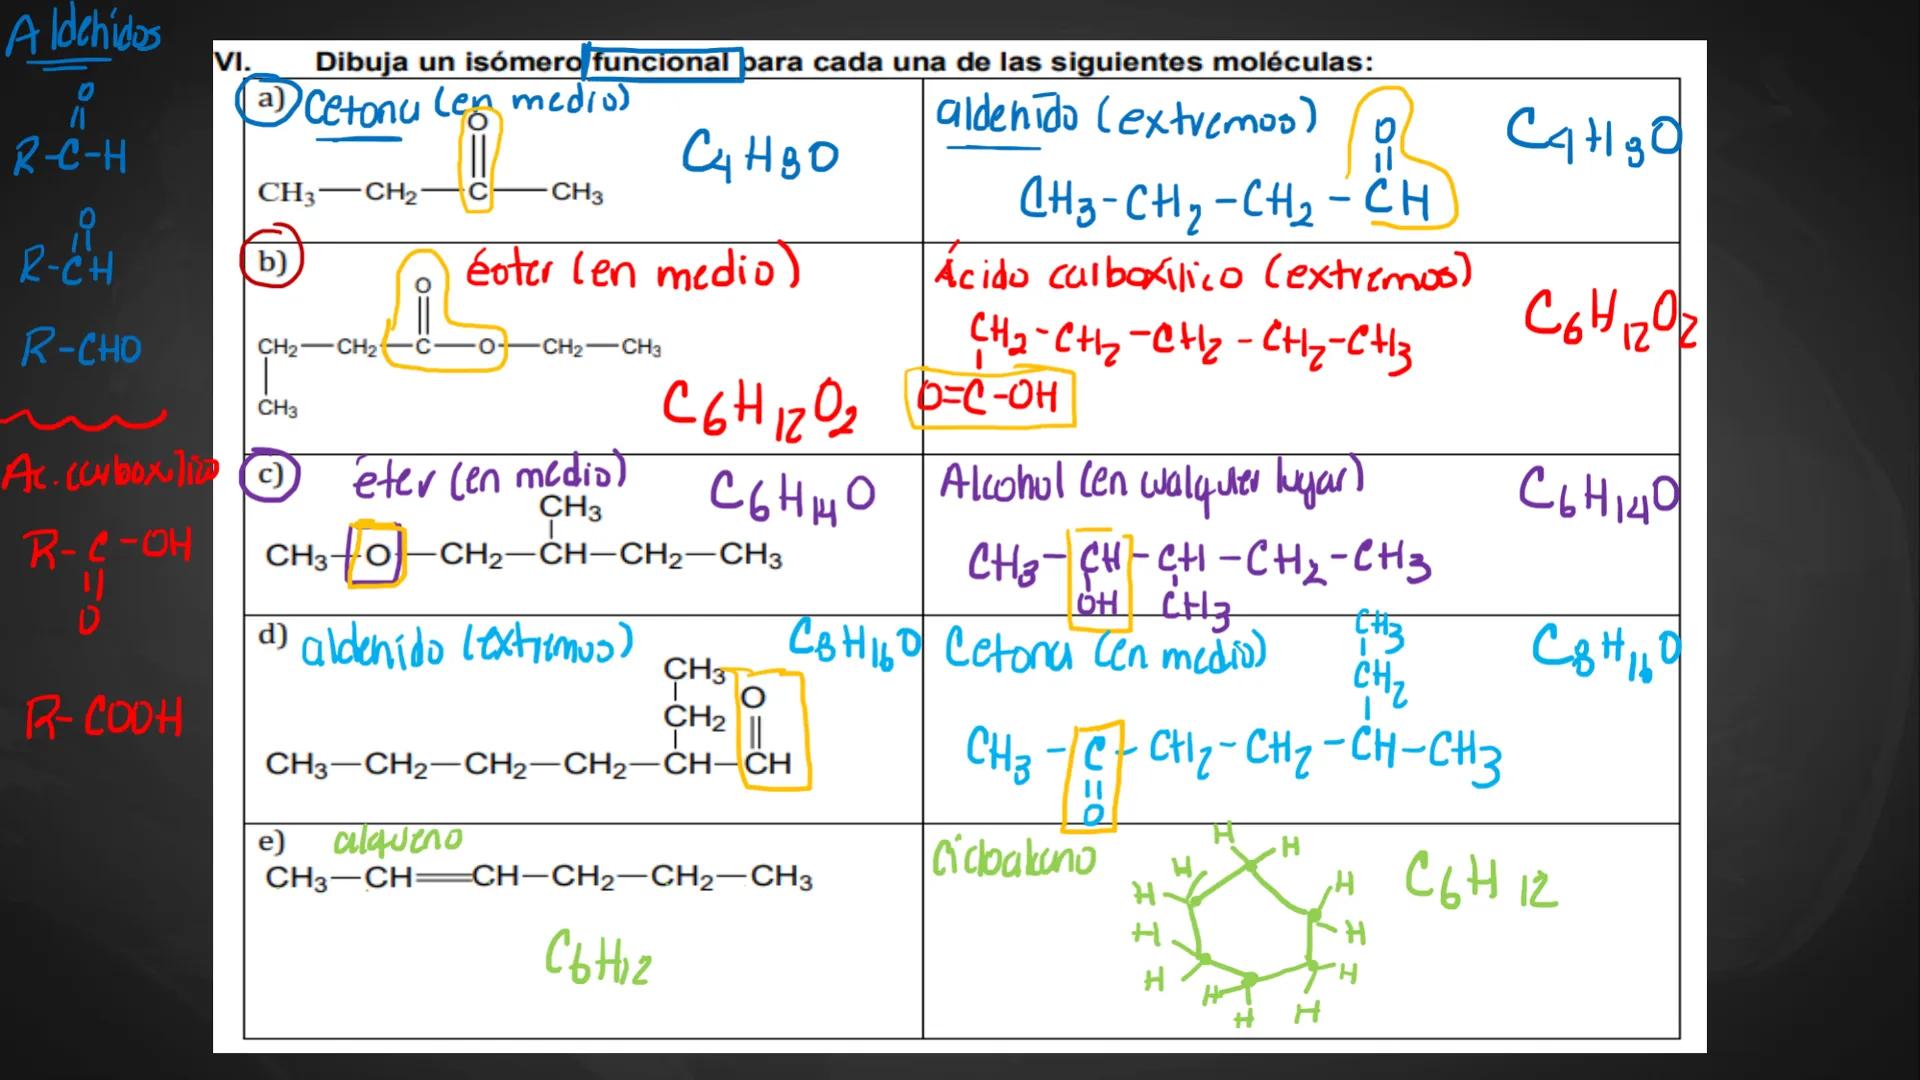 Aldehídos
O
R-C-H
O
R-CH
R-CHO
Ac. carboxílico
R-C-OH
O
R-COOH
VI. Dibuja un isómero funcional para cada una de las siguientes moléculas:
a) Cetona (en medio)
O
CH₃—CH₂—C—CH₃
C₄H₈O
aldehído (extremos)
O
CH₃-CH₂-CH₂-CH
C₄H₈O
b) éster (en medio)
O
CH₂—CH₂—C—O—CH₂—CH₃
CH₃
C₆H₁₂O₂
Ácido carboxílico (extremos)
CH₂-CH₂-CH₂-CH₂-CH₃
O=C-OH
C₆H₁₂O₂
c) éter (en medio)
C₆H₁₄O
CH₃
CH₃—O—CH₂—CH—CH₂—CH₃
Alcohol (en cualquier lugar)
C₆H₁₄O
CH₃-CH-CH-CH₂-CH₃
OH CH₃
d) aldehído (extremos)
C₈H₁₆O
CH₃
O
CH₂
CH₃—CH₂—CH₂—CH₂—CH—CH
Cetona (en medio)
CH₃
CH₂
C₈H₁₆O
CH₃-C-CH₂-CH₂-CH-CH₃
O
e) alqueno
CH₃—CH=CH—CH₂—CH₂—CH₃
C₆H₁₂
Cicloalcano
H H
H H
H H
H H
H H
H H
C₆H₁₂